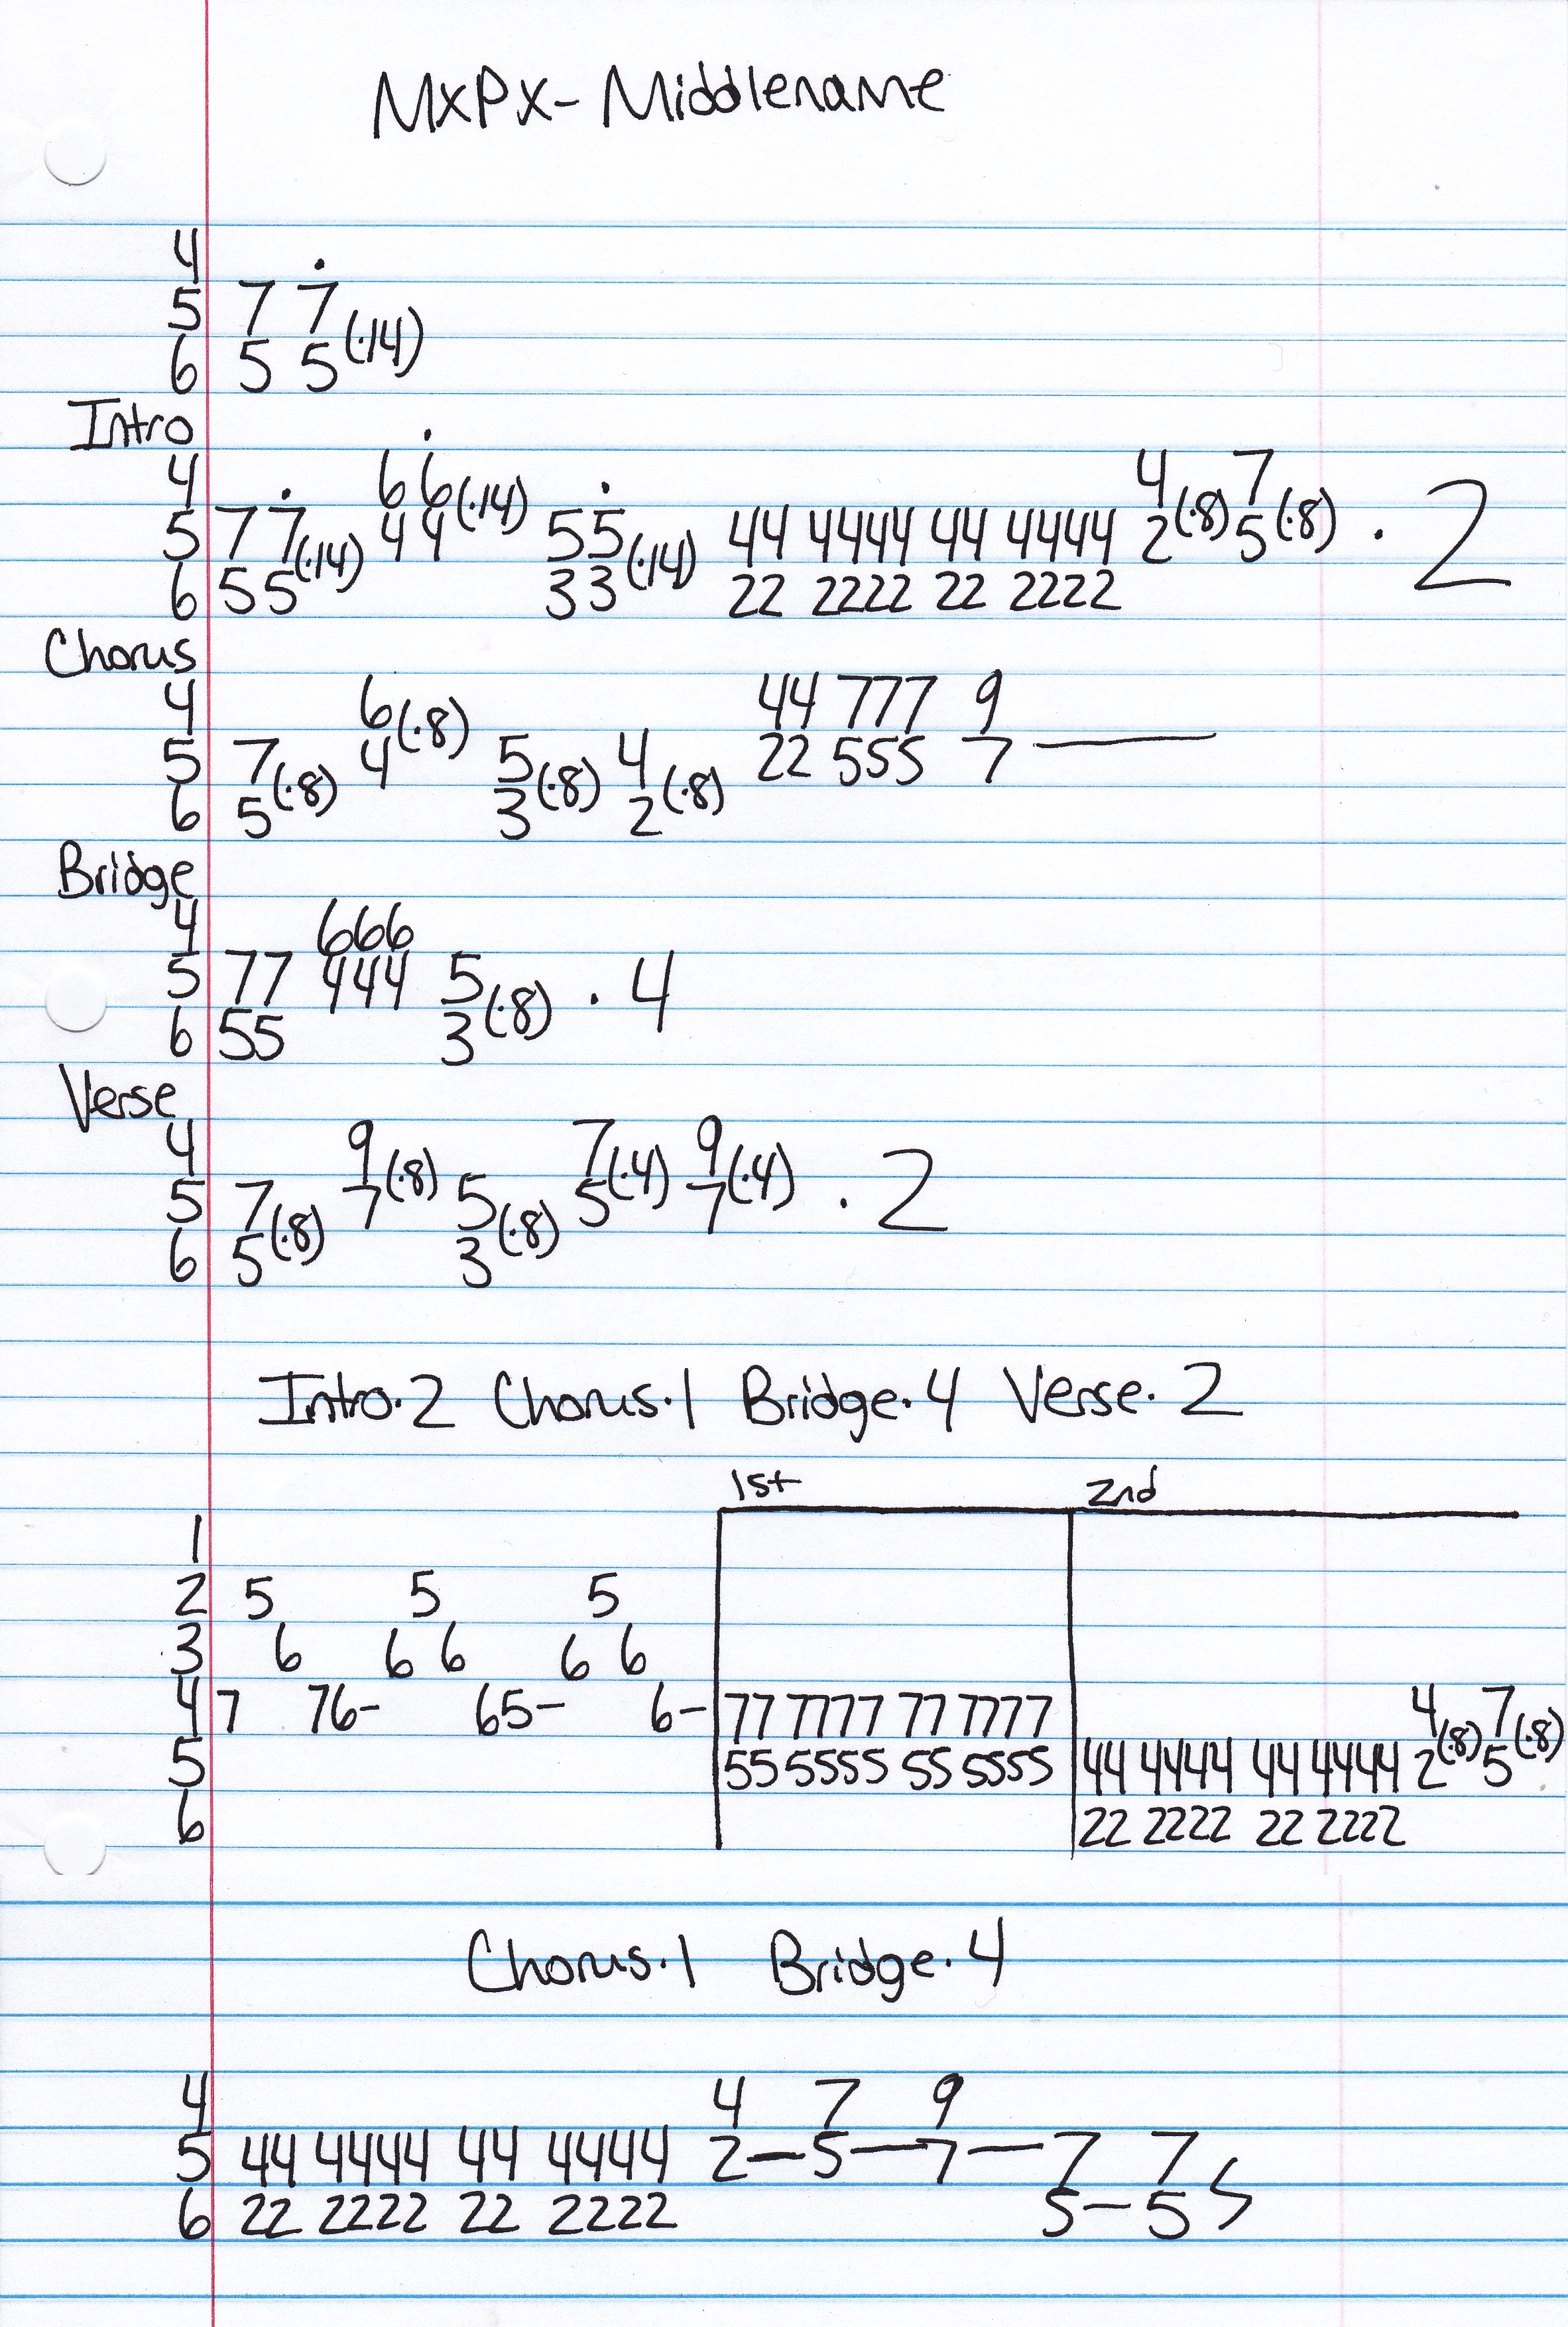 MxPx - Middlename
4 .
5 7 7
6 5 5 (·14)
Intro
4 6 6̇ (·14) 4 7
5 7 7̇ 4 4 5 5̇ 44 4444 44 4444 2 (·8) 5 (·8) · 2
6 5 5 (·14) 3 3 (·14) 22 2222 22 2222
Chorus
4 6 (·8) 44 777 9
5 7 4 5 4 22 555 7 —
6 5 (·8) 3 (·8) 2 (·8)
Bridge
4 666
5 77 444 5 · 4
6 55 3 (·8)
Verse
4 9 (·8) 7 (·4) 9 (·4)
5 7 7 5 5 7 · 2
6 5 (·8) 3 (·8)
Intro·2 Chorus·1 Bridge·4 Verse·2
1st 2nd
1
2 5 5 5
3 6 6 6 6 6
4 7 76- 65- 6- 77 7777 77 7777 4 7
5 55 5555 55 5555 44 4444 44 4444 2 (·8) 5 (·8)
6 22 2222 22 2222
Chorus·1 Bridge·4
4 4 7 9
5 44 4444 44 4444 2—5—7—7 7
6 22 2222 22 2222 5—5